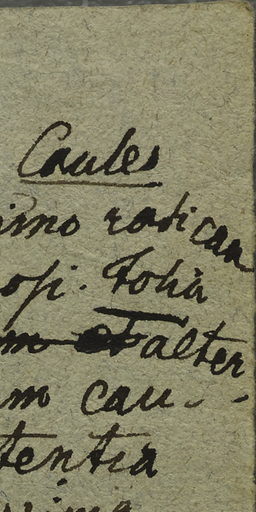 Caules
imo radican
osi. Folia
m alter
m cau--
tentia